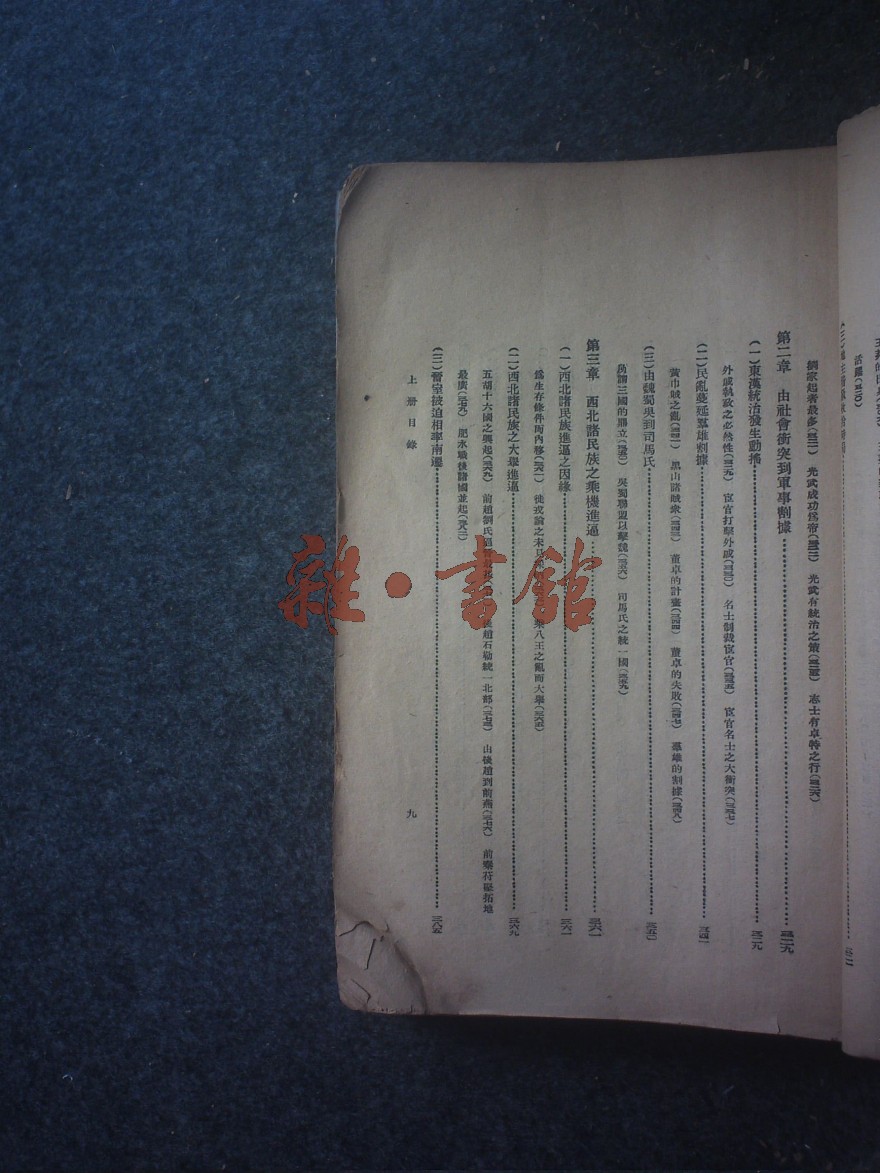 活躍(三一〇)
劉家起者最多(三二一)　光武成功爲帝(三二二)　光武有統治之策(三二五)　志士有卓特之行(三二六)
第二章　由社會衝突到軍事割據……三二九
(一)東漢統治發生動搖……三二九
外戚執政之必然性(三二九)　宦官打擊外戚(三三〇)　名士制裁宦官(三三五)　宦官名士之大衝突(三三七)
(二)民亂蔓延羣雄割據……三四一
黃巾賊之亂(三四一)　黑山諸賊衆(三四三)　董卓的計畫(三四四)　董卓的失敗(三四七)　羣雄的割據(三四八)
(三)由魏蜀吳到司馬氏……三五〇
所謂三國的鼎立　吳蜀聯盟以擊魏(三五六)　司馬氏之統一國(三五九)
第三章　西北諸民族之乘機進逼……三六一
(一)西北諸民族進逼之因緣……三六一
爲生存條件而內移(三六一)　徙戎論之未見　乘八王之亂而大舉(三六五)
(二)西北諸民族之大舉進逼……三六九
五胡十六國之興起(三六九)　前趙劉氏　後趙石勒統一北部(三七三)　由後趙到前燕(三七六)　前秦苻堅拓地
最廣(三七九)　肥水戰後諸國並起(三八二)
(三)晉室被迫相率南遷……三八五
上册目錄
九
雜·書館